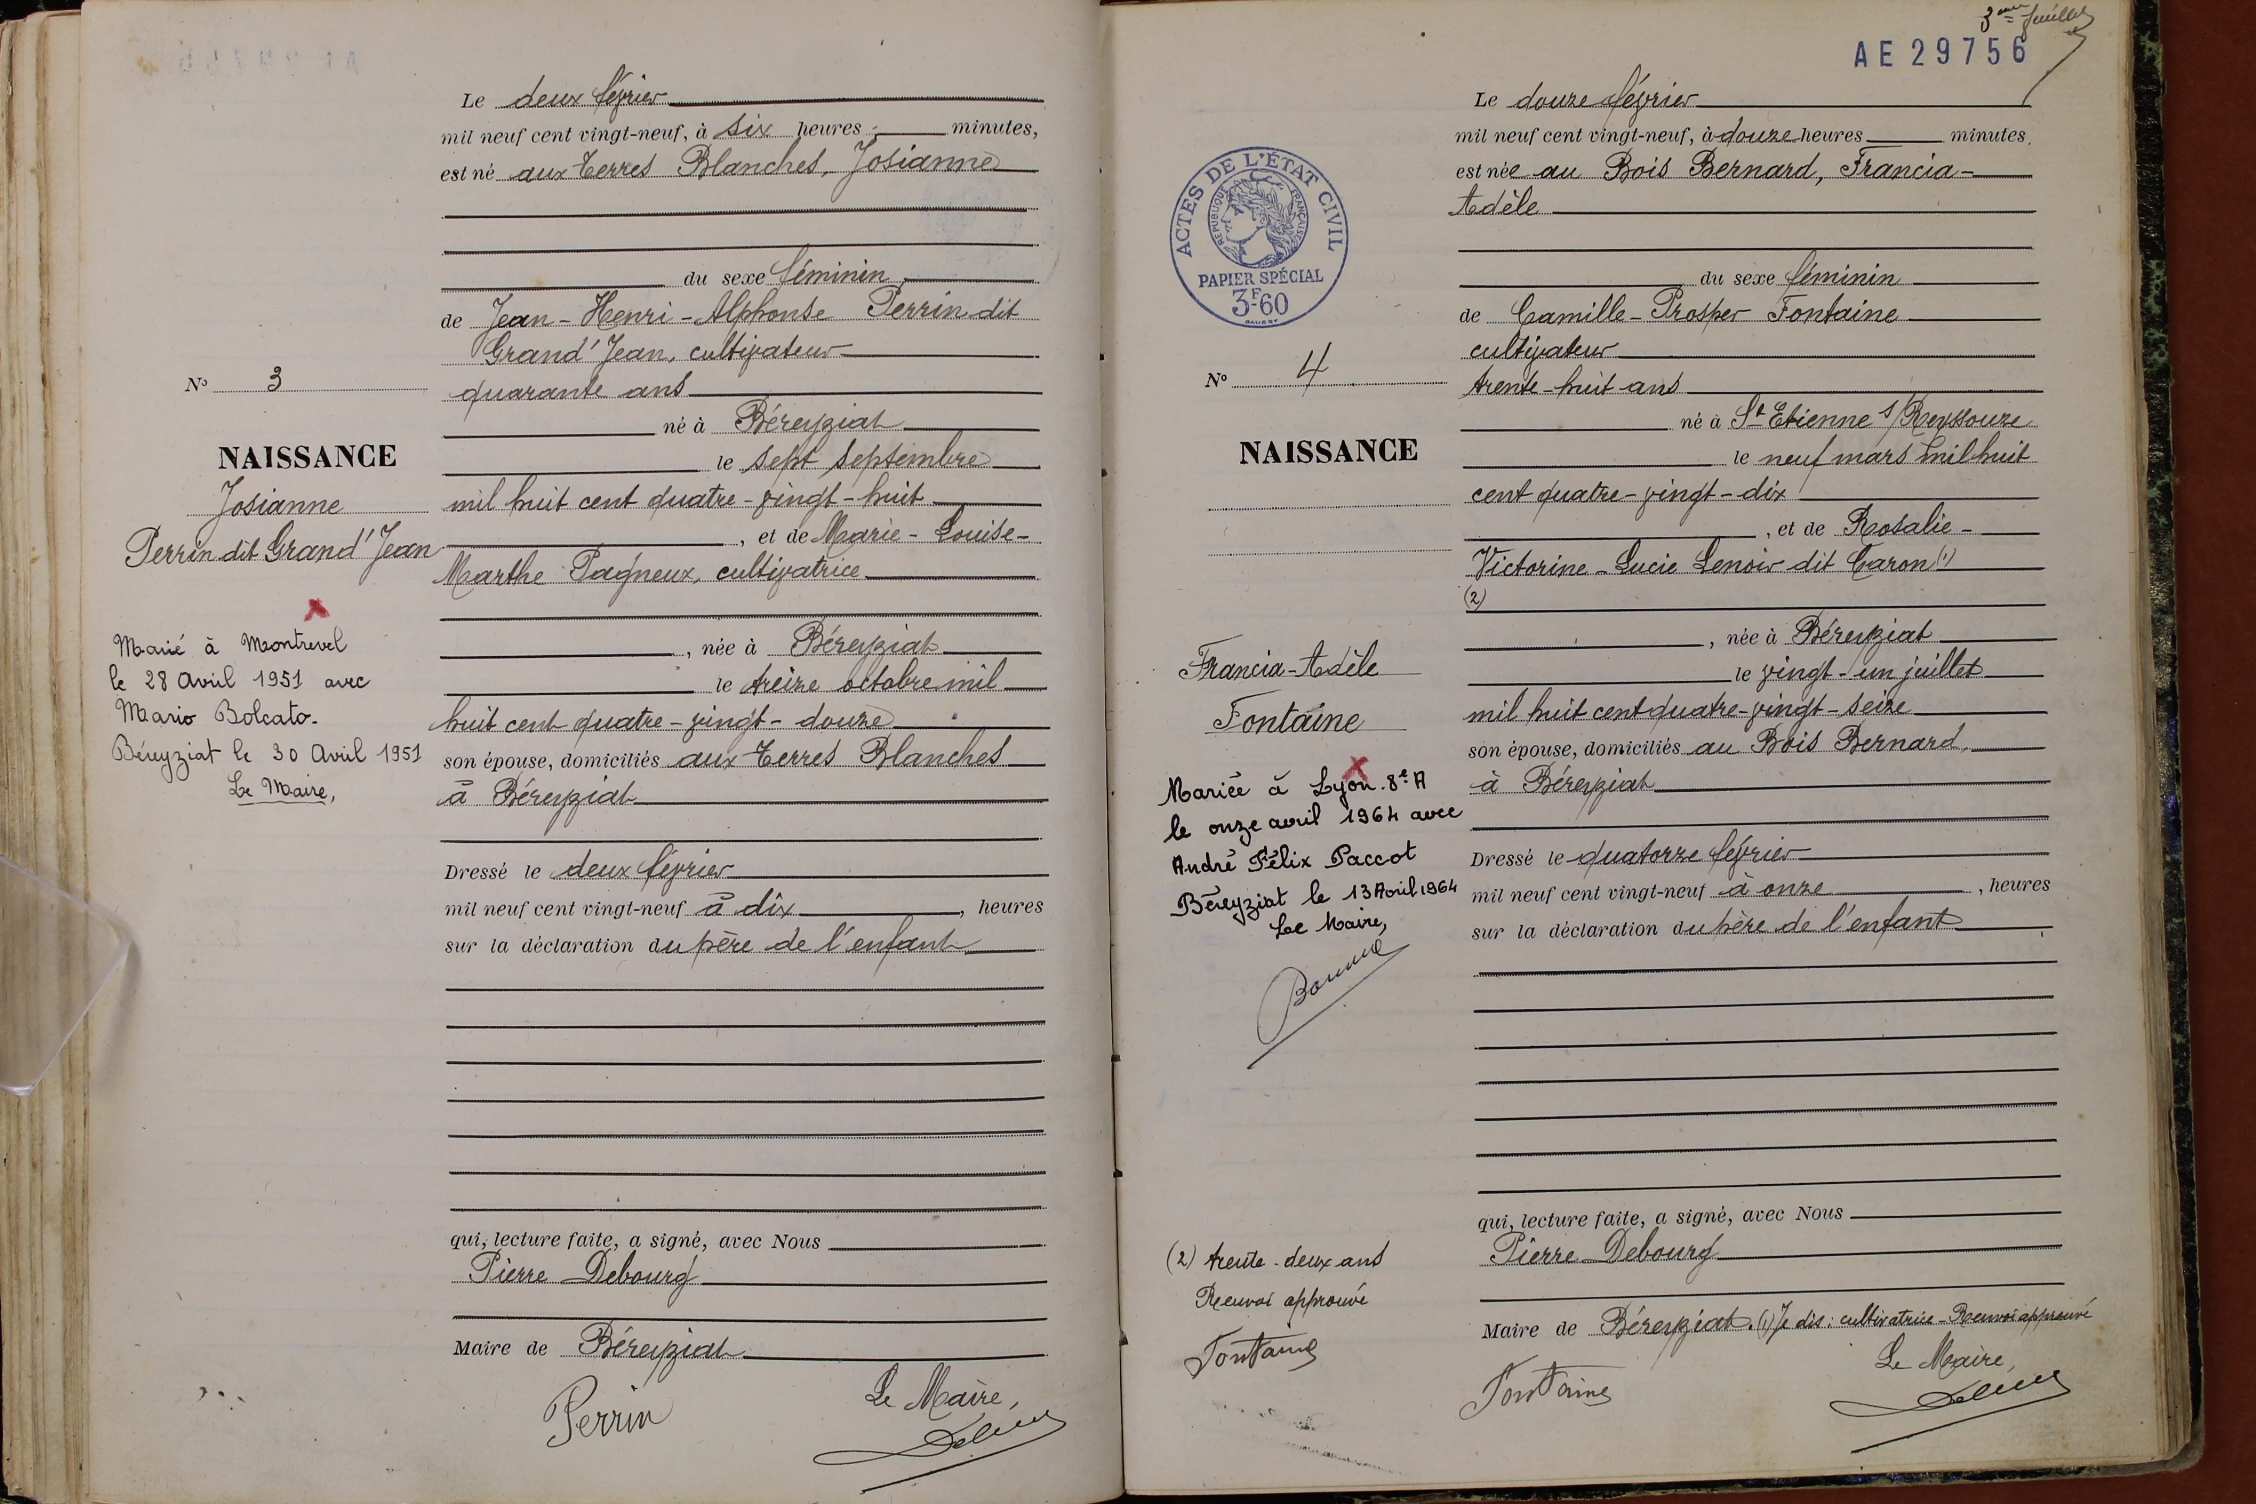 Le deux février
mil neuf cent vingt-neuf, à six heures minutes,
est né aux Terres Blanches, Josianne
du sexe féminin
de Jean-Henri-Alphonse Perrin dit
Grand'Jean, cultivateur
quarante ans
né à Béreyziat
le sept septembre
mil huit cent quatre-vingt-huit
, et de Marie-Louise-
Marthe Pagneux, cultivatrice
, née à Béreyziat
le treize octobre mil
huit cent quatre-vingt-douze
son épouse, domiciliés aux Terres Blanches
à Béreyziat
Dressé le deux février
mil neuf cent vingt-neuf à dix , heures
sur la déclaration du père de l'enfant
qui, lecture faite, a signé, avec Nous
Pierre Debourg
Maire de Béreyziat
Le Maire,
Perrin
No 3
NAISSANCE
Josianne
Perrin dit Grand'Jean
Marié à Montrevel
le 28 Avril 1951 avec
Mario Bolcato.
Béreyziat le 30 Avril 1951
Le Maire,
3me feuillet
AE29756
Le douze février
mil neuf cent vingt-neuf, à douze heures minutes,
est née au Bois Bernard, Francia-
Adèle
du sexe féminin
de Camille-Prosper Fontaine
cultivateur
trente-huit ans
né à St Etienne s/Reyssouze
le neuf mars mil huit
cent quatre-vingt-dix
, et de Rosalie-
Victorine-Lucie Lenoir dit Caron (1)
(2)
, née à Béreyziat
le vingt-un juillet
mil huit cent quatre-vingt-seize
son épouse, domiciliés au Bois Bernard,
à Béreyziat
Dressé le quatorze février
mil neuf cent vingt-neuf à onze , heures
sur la déclaration du père de l'enfant
qui, lecture faite, a signé, avec Nous
Pierre Debourg
Maire de Béreyziat. (1) Je dis: cultivatrice - Renvoi approuvé
Le Maire,
Fontaine
ACTES DE L'ÉTAT CIVIL
REPUBLIQUE FRANÇAISE
PAPIER SPÉCIAL
3F-60
No 4
NAISSANCE
Francia-Adèle
Fontaine
Mariée à Lyon. 8e A
le onze avril 1964 avec
André Félix Paccot
Béreyziat le 13 Avril 1964
Le Maire,
(2) trente-deux ans
Renvoi approuvé
Fontaine